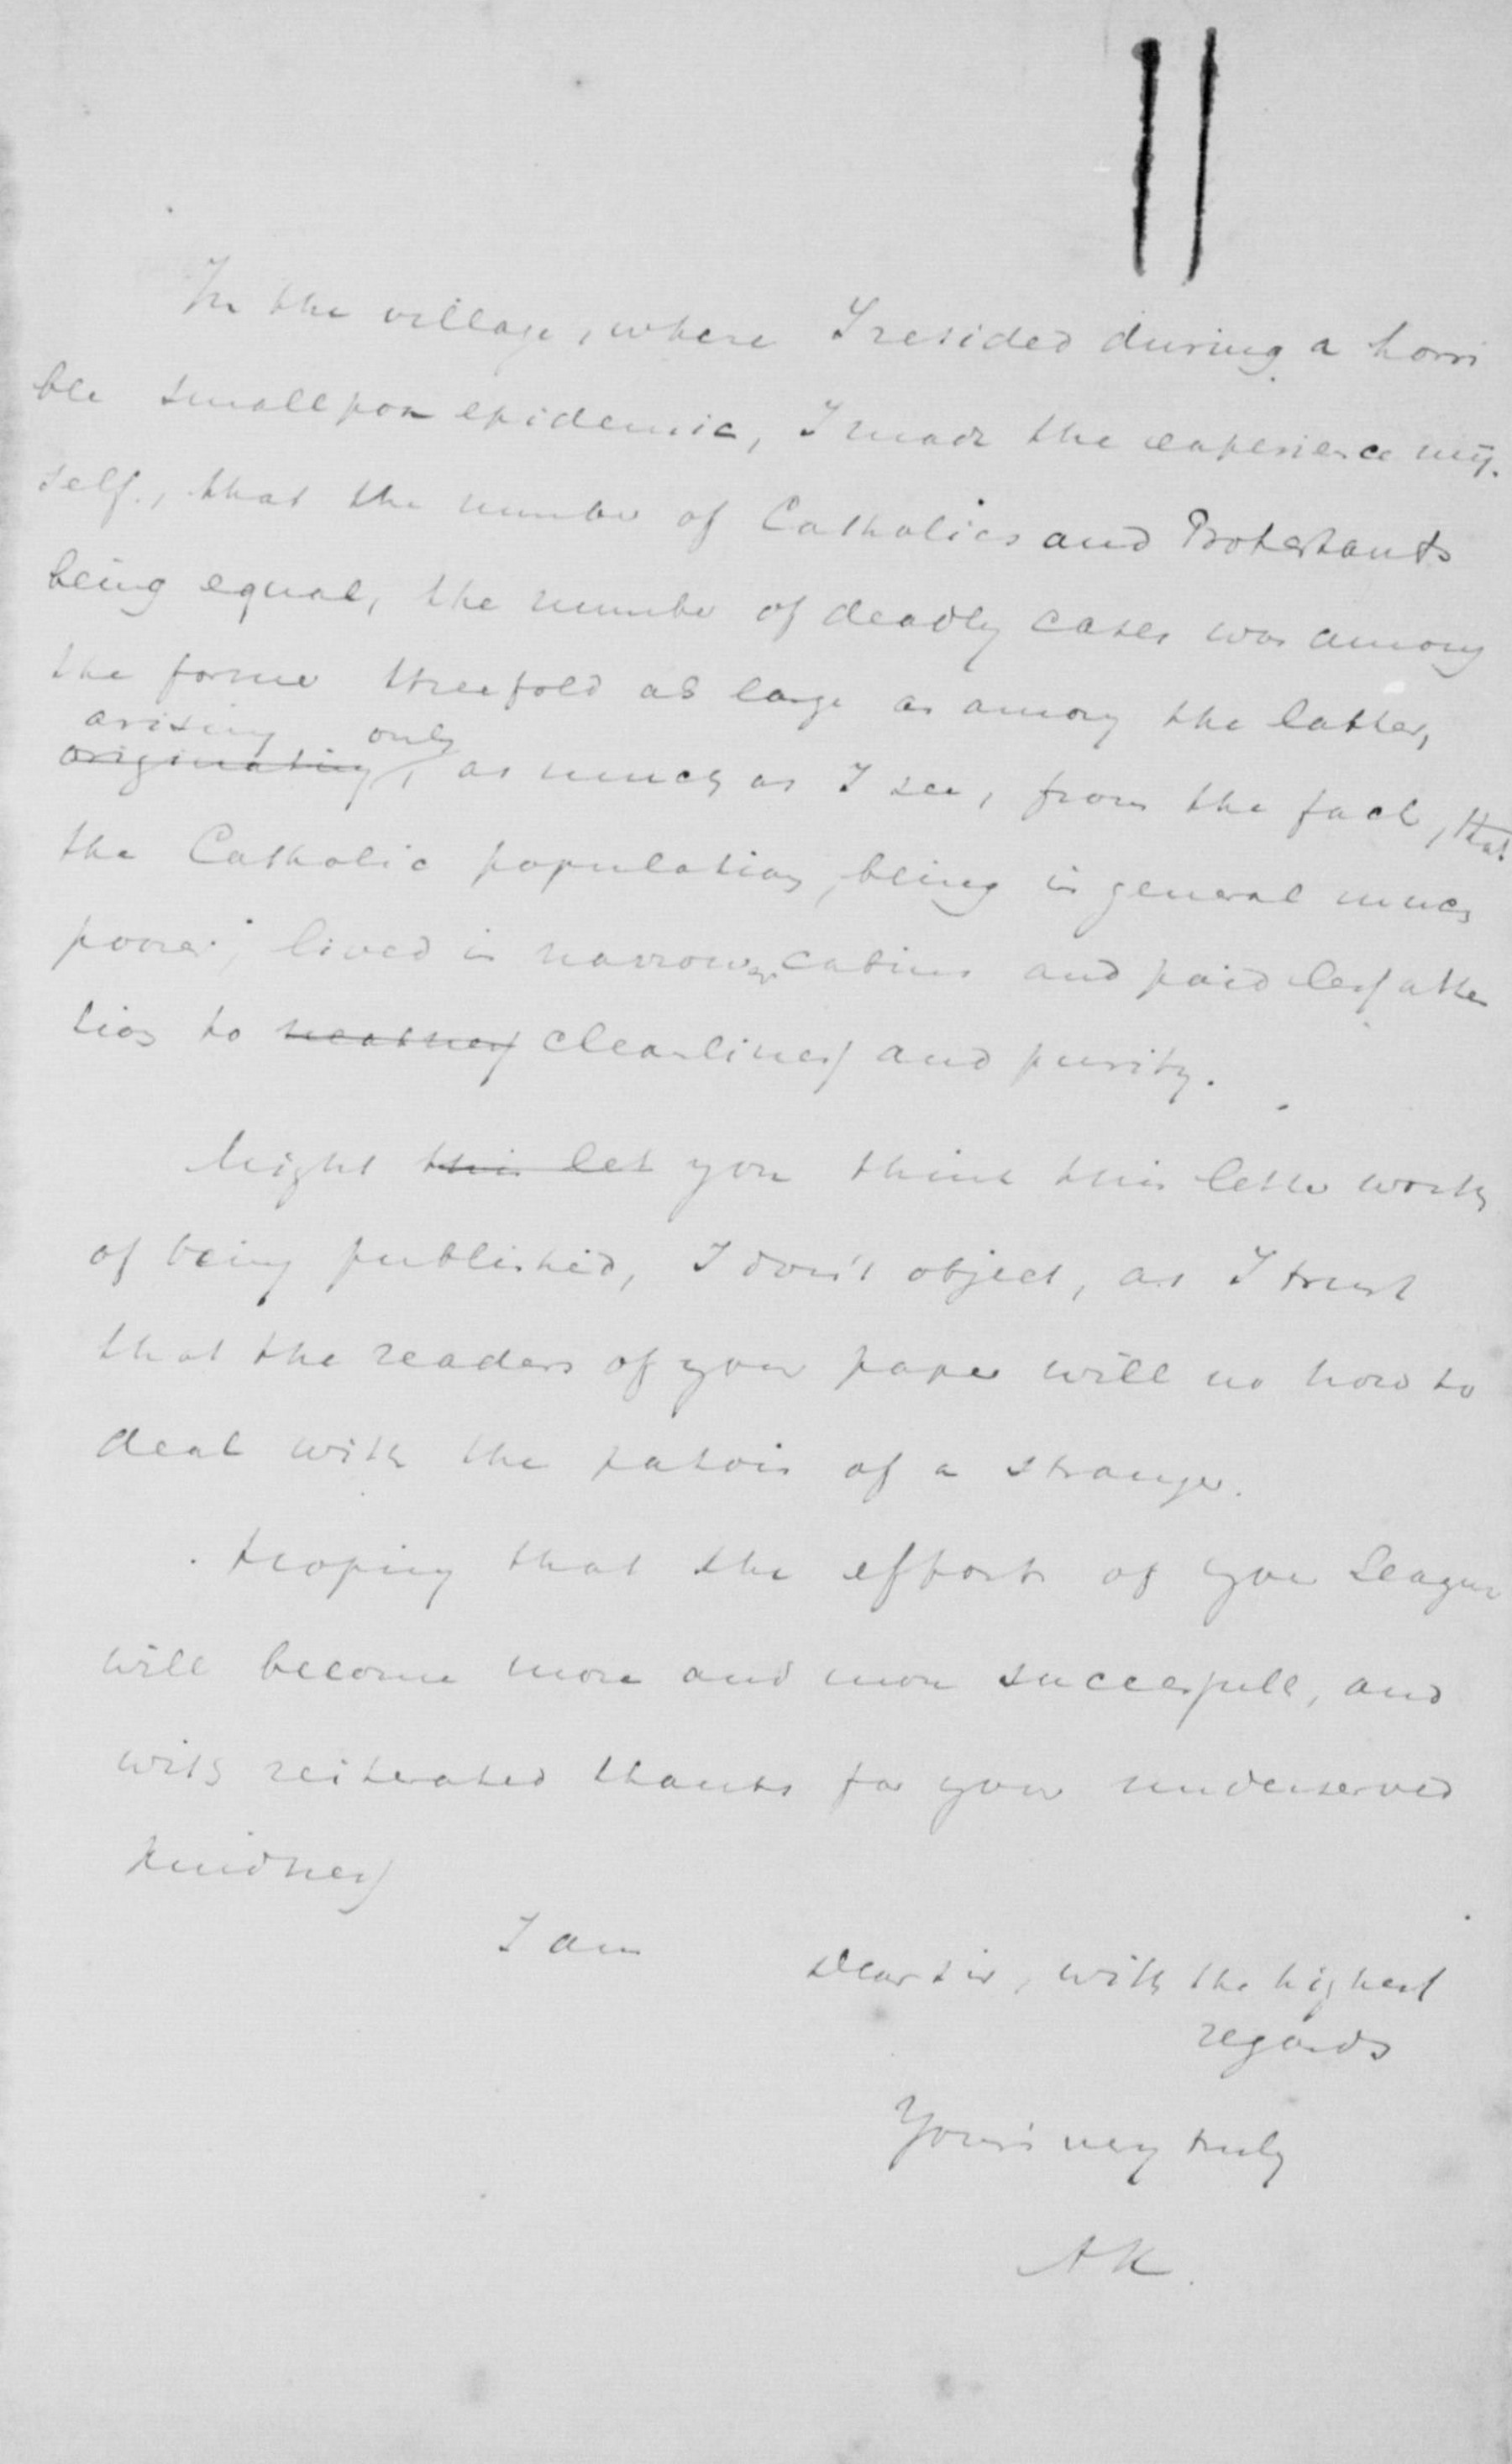 In the village, where I resided during a horri
ble smallpox epidemic, I made the experience my-
self, that the number of Catholics and Protestants
being equal, the number of deadly cases was among
the former threefold as large as among the latter,
arising only
originating, as much as I see, from the fact, that
the Catholic population, being in general much
poorer, lived in narrower cabins and paid less atten
tion to neatness cleanliness and purity.
Might this let you think this letter worthy
of being published, I don't object, as I trust
that the readers of your paper will no how to
deal with the patois of a stranger.
Hoping that the efforts of your League
will become more and more successfull, and
with reiterated thanks for your undeserved
kindness
I am
Dear sir, with the highest
regards
Your's very truly
AK.